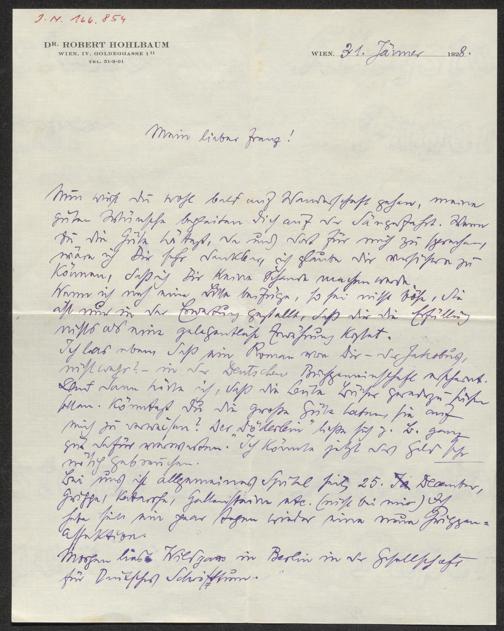 I.N. 166.854
DR. ROBERT HOHLBAUM
WIEN, IV. GOLDEGGASSE 1
TEL. 51-9-01
WIEN, 31. Jänner 1928.
Mein lieber Franz!
Nun wirst Du wohl bald auf Wanderschaft gehen, meine
guten Wünsche begleiten Dich auf der Sängerfahrt. Wenn
Du die Güte hättest, da und dort für mich zu sprechen,
wäre ich Dir sehr dankbar, ich glaube Dir versichern zu
können, daß ich Dir keine Schande machen werde.
Wenn ich noch eine Bitte beifüge, so sei nicht böse, sie
ist nur in der Erwartung gestellt, daß Dir die Erfüllung
nichts als eine gelegentliche Erwähnung kostet.
Ich las eben, daß ein Roman von Dir – der Jakobus,
nicht wahr? – in der Deutschen Buchgemeinschaft erscheint.
Und dann hörte ich, daß die Leute Bücher geradezu suchen
sollen. Könntest Du die große Güte haben, sie auf
mich zu verweisen? Der ließe sich z. B. ganz
gut dafür verwerten. Ich könnte jetzt das Geld sehr
nötig gebrauchen.
Bei uns ist allgemeines Spital seit 25. Dezember,
Grippe, Katarrhe, Gallensteine etc. (nicht bei mir) Ich
habe seit ein paar Tagen wieder eine neue Grippen-
affektion.
Morgen liest Wildgans in Berlin in der Gesellschaft
für Deutsches Schrifttum.